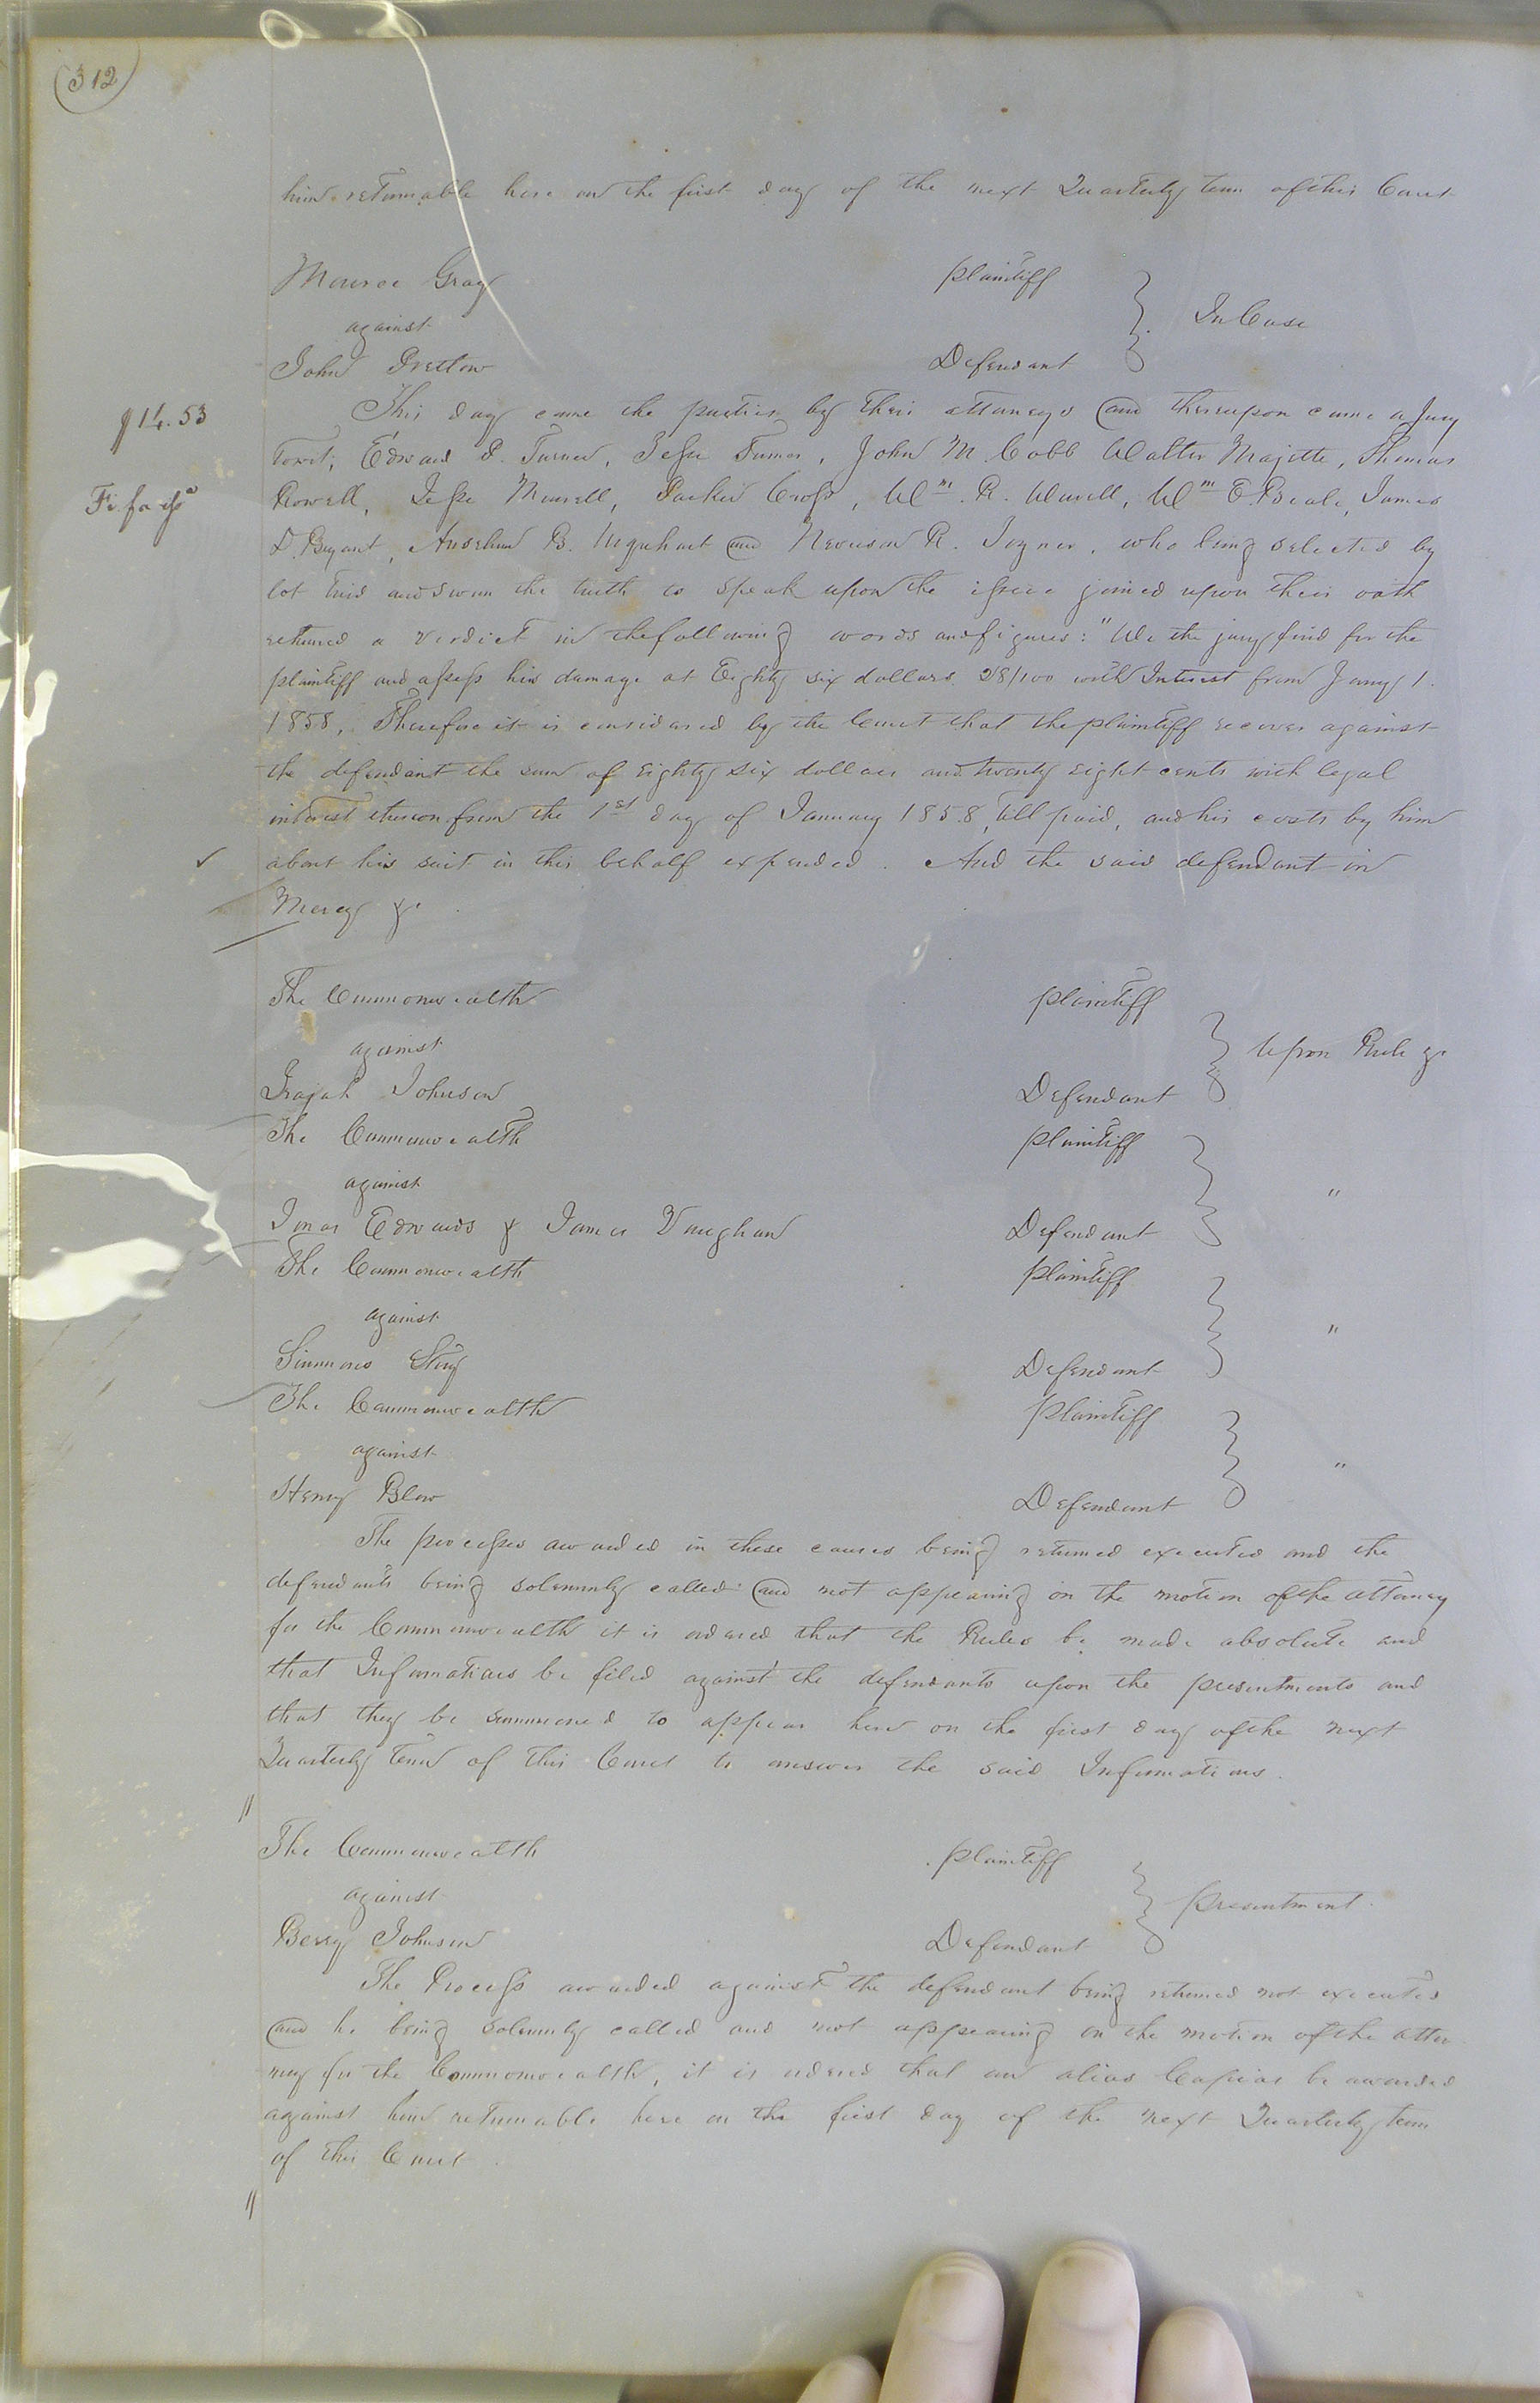 312
him returnable here on the first day of the next Quarterly term of this Court
Monroe Gray Plaintiff
against In Case
John Pretlow Defendant
$14.53
This day came the parties by their attorneys and thereupon came a Jury
Towit; Edward P. Turner, Jesse Turner, John M. Cobb Walter Majette, Thomas
Fi. fa issd
Rowell, Jesse Murrell, Parker Cross, Wm. R. Worrell, Wm E. Beale, James
D. Bryant, Anselm B. Urquhart and Nevison R. Joyner, who being selected by
lot tried and sworn the truth to speak upon the issue joined upon their oath
returned a verdict in the following words and figures: "We the jury find for the
plaintiff and assess his damage at Eighty six dollars 28/100 with Interest from Jany 1.
1858, Therefore it is considered by the Court that the plaintiff recover against
the defendant the sum of Eighty six dollars and twenty eight cents with legal
interest thereon from the 1st day of January 1858, till paid, and his costs by him
about his suit in this behalf expended. And the said defendant in
Mercy &c.
The Commonwealth Plaintiff
against Upon Rule &c
Isajah Johnson Defendant
The Commonwealth Plaintiff
against "
Jonas Edwards & James Vaughan Defendant
The Commonwealth Plaintiff
against "
Simmons Defendant
The Commonwealth Plaintiff
against "
Henry Blow Defendant
The processes awarded in these causes being returned executed and the
defendants being solemnly called and not appearing on the motion of the attorney
for the Commonwealth it is ordered that the Rules be made absolute and
that Informations be filed against the defendants upon the presentments and
that they be summoned to appear here on the first day of the next
Quarterly term of this Court to answer the said Informations.
The Commonwealth Plaintiff
against presentment.
Berry Johnson Defendant
The Process awarded against the defendant being returned not executed
and he being solemnly called and not appearing on the motion of the attor
ney for the Commonwealth, it is ordered that an alias Capias be awarded
against him returnable here on the first day of the next Quarterly term
of this Court.